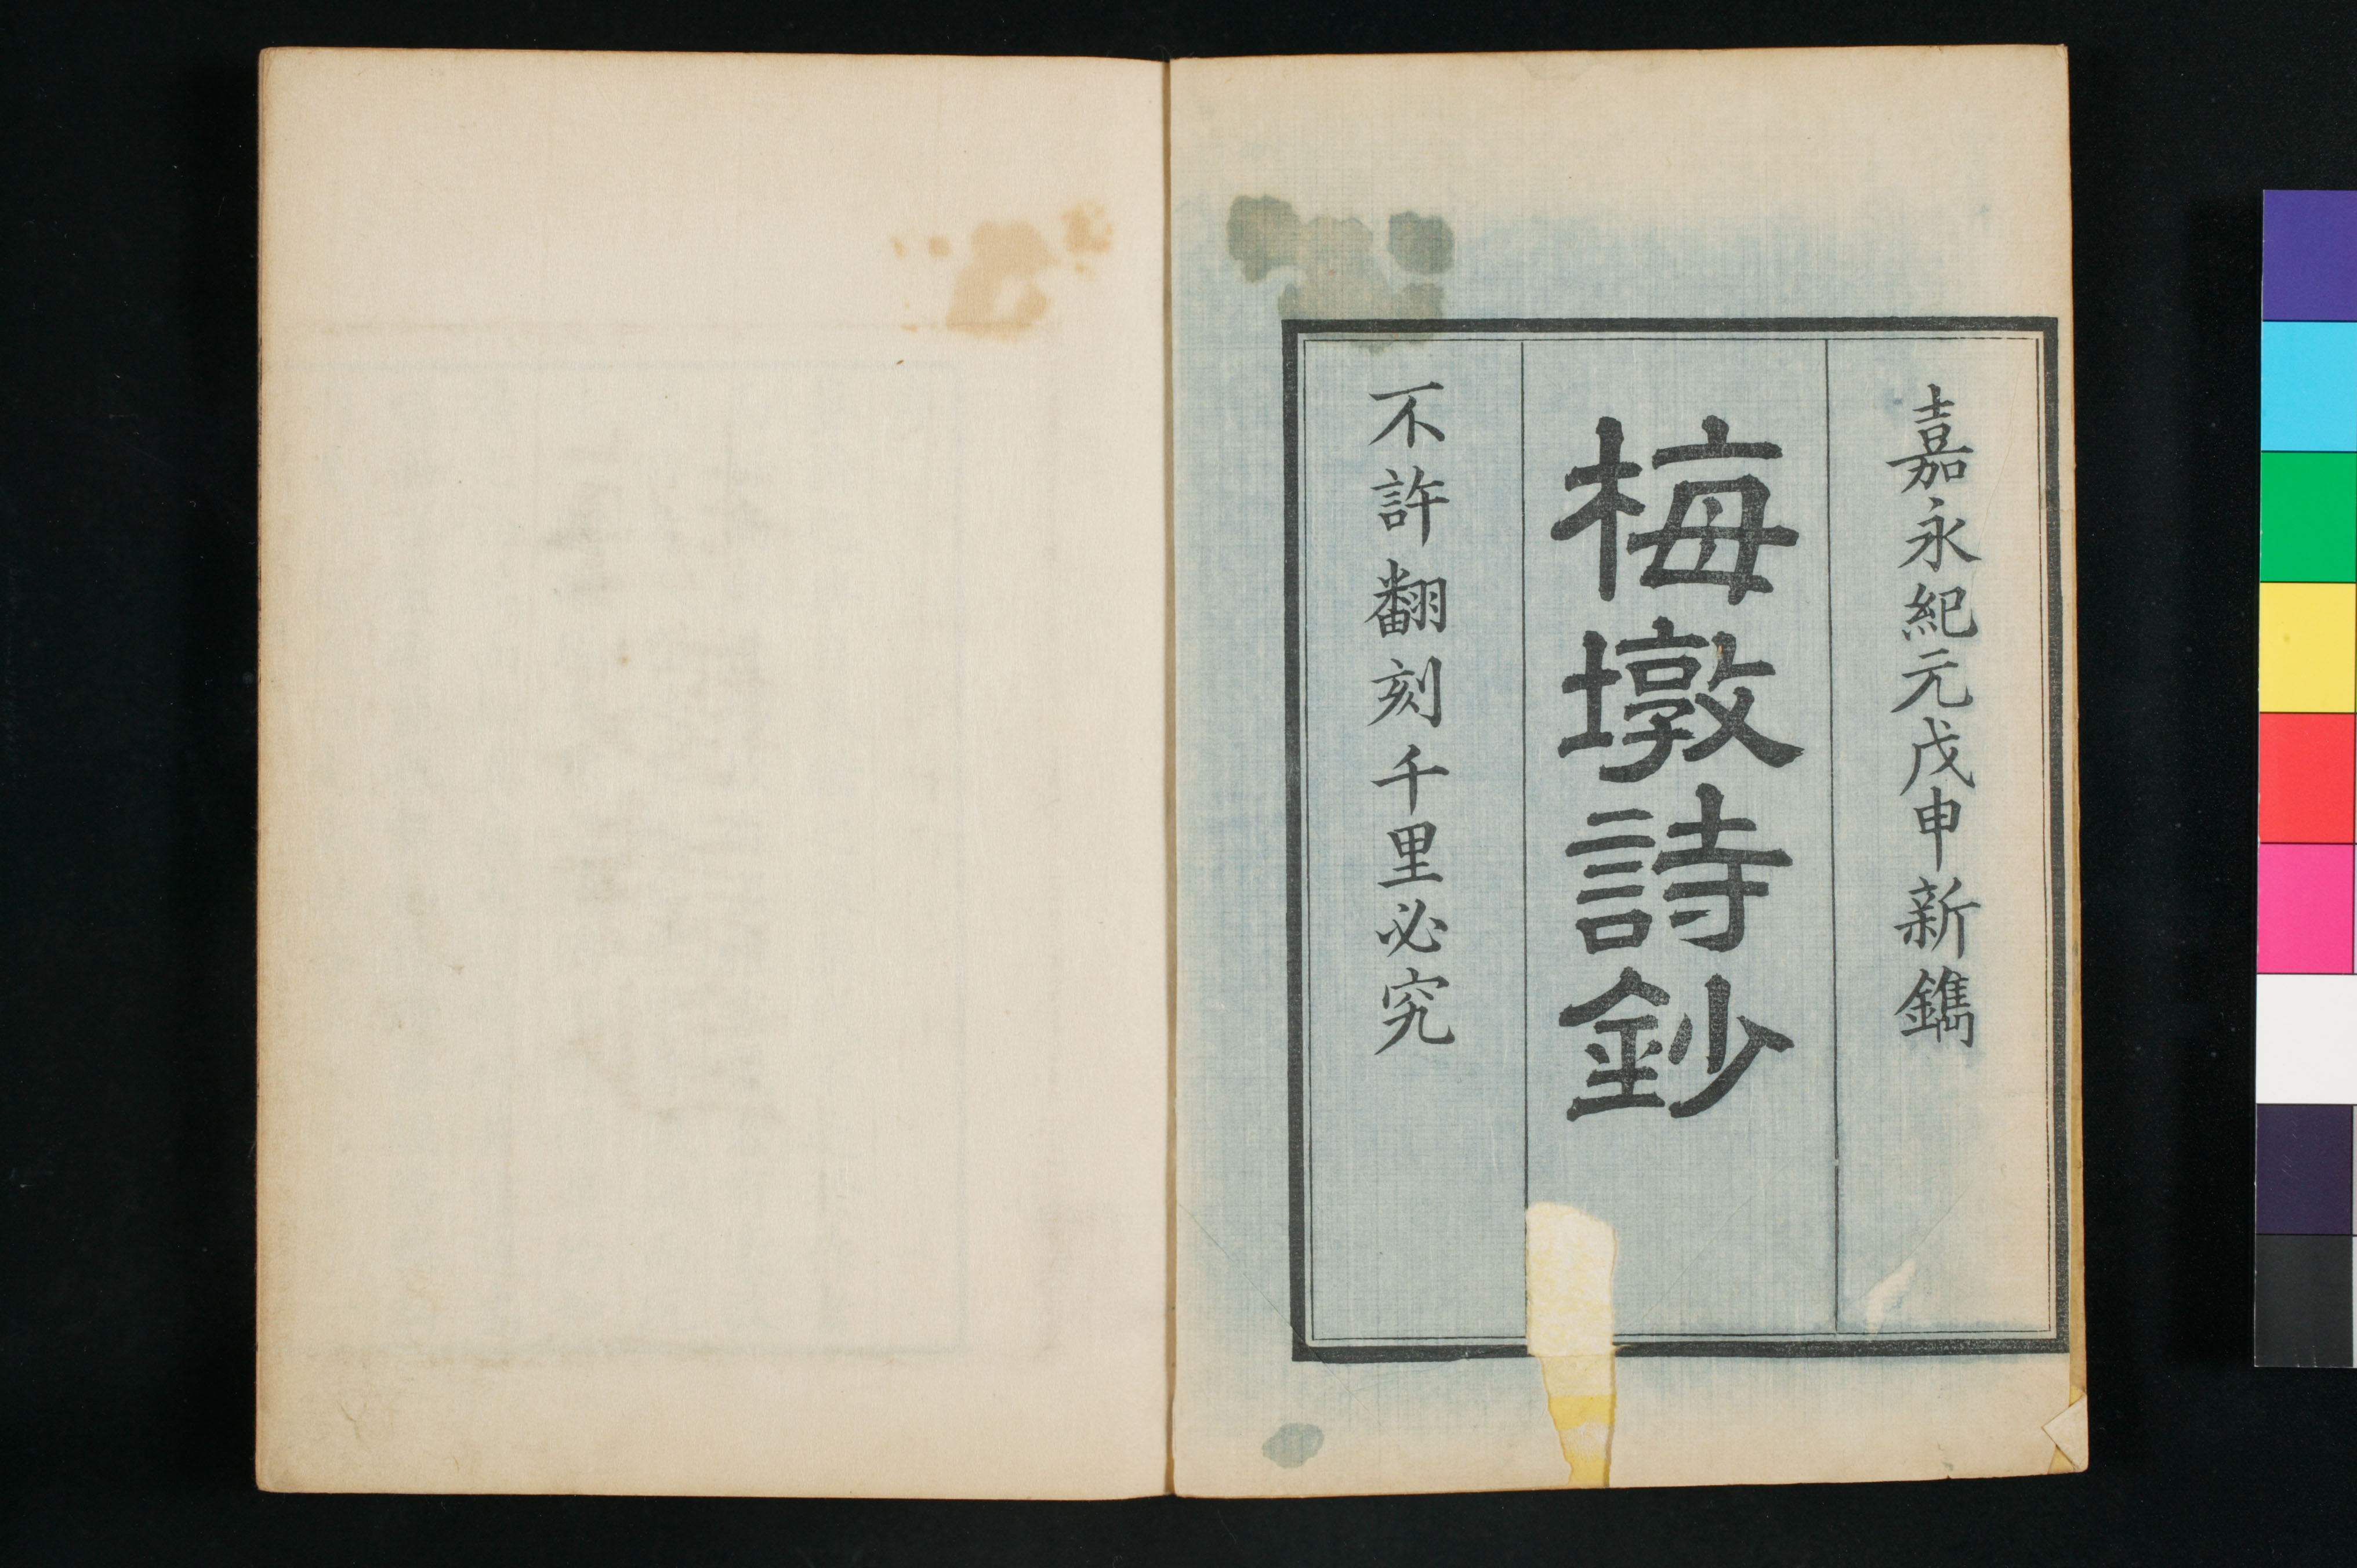 嘉永紀元戊申新鐫
梅墩詩鈔
不許翻刻千里必究